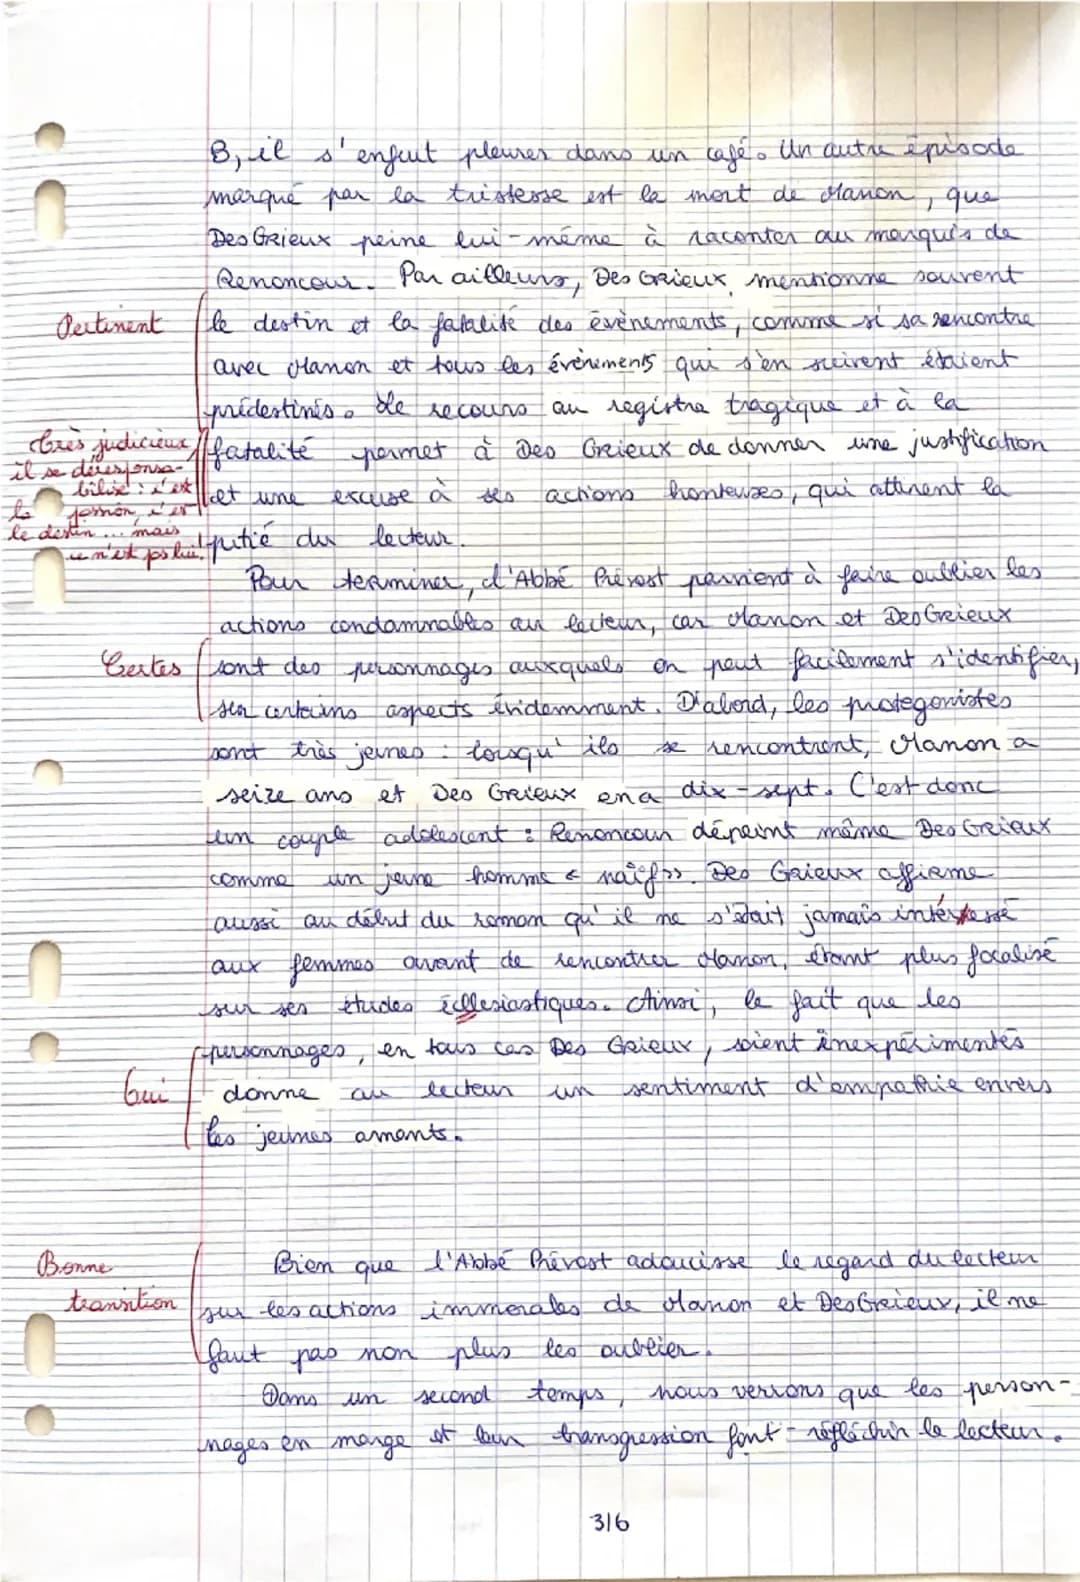 B, il s'enfuit pleurer dans un café. Un autre épisode
marqué par la tristesse est la mort de Manon, que
Des Grieux peine lui-même à raconter au marquis de
Renoncour. Par ailleurs, Des Grieux mentionne souvent
Pertinent
le destin et la fatalité des évènements, comme si sa rencontre
avec Manon et tous les événements qui s'en suivent étaient
prédestinés. Le recours au registre tragique et à la
Très judicieux,
il se déresponsa-
bilise : c'est
la passion, c'est
le destin ... mais
ce n'est pas lui!
fatalité permet à Des Grieux de donner une justification
et une excuse à ses actions honteuses, qui attirent la
pitié du lecteur.
Pour terminer, l'Abbé Prévost parvient à faire oublier les
actions condamnables au lecteur, car Manon et Des Grieux
Certes
sont des personnages auxquels on peut facilement s'identifier,
sur certains aspects évidemment. D'abord, les protagonistes
sont très jeunes : lorsqu'ils se rencontrent, Manon a
seize ans et Des Grieux en a dix-sept. C'est donc
un couple adolescent : Renoncour dépeint même Des Grieux
comme un jeune homme « naïf ». Des Grieux affirme
aussi au début du roman qu'il ne s'était jamais intéressé
aux femmes avant de rencontrer Manon, étant plus focalisé
sur ses études écllesiastiques. Ainsi, le fait que les
personnages, en tous cas Des Grieux, soient inexpérimentés
Oui
donne au lecteur un sentiment d'empathie envers
les jeunes amants.
Bonne
transition
Bien que l'Abbé Prévost adoucisse le regard du lecteur
sur les actions immorales de Manon et Des Grieux, il ne
faut pas non plus les oublier.
Dans un second temps, nous verrons que les person-
nages en marge et leur transgression font réfléchir le lecteur.
3/6